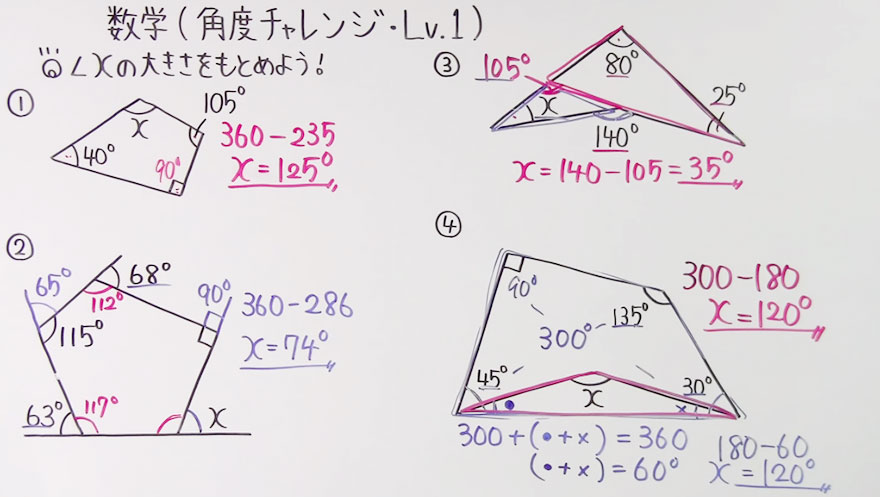 数学(角度チャレンジ・Lv.1)
∠xの大きさをもとめよう!
①
105°
x
40°
90°
360-235
x=125°
②
65°
68°
112°
115°
90°
360-286
x=74°
63°
117°
x
③
105°
80°
25°
x
140°
x=140-105=35°
④
90°
135°
300°
45°
30°
x
•
×
300-180
x=120°
300+(•+×)=360
(•+×)=60°
180-60
x=120°